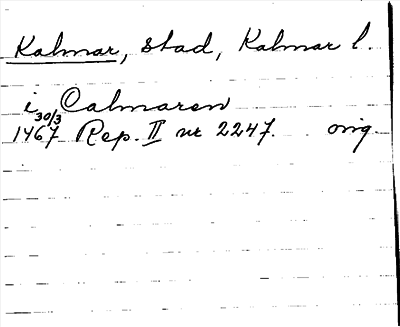 Kalmar, stad, Kalmar l.
i Calmaren
1467 30/3 Rep. II nr 2247. orig.